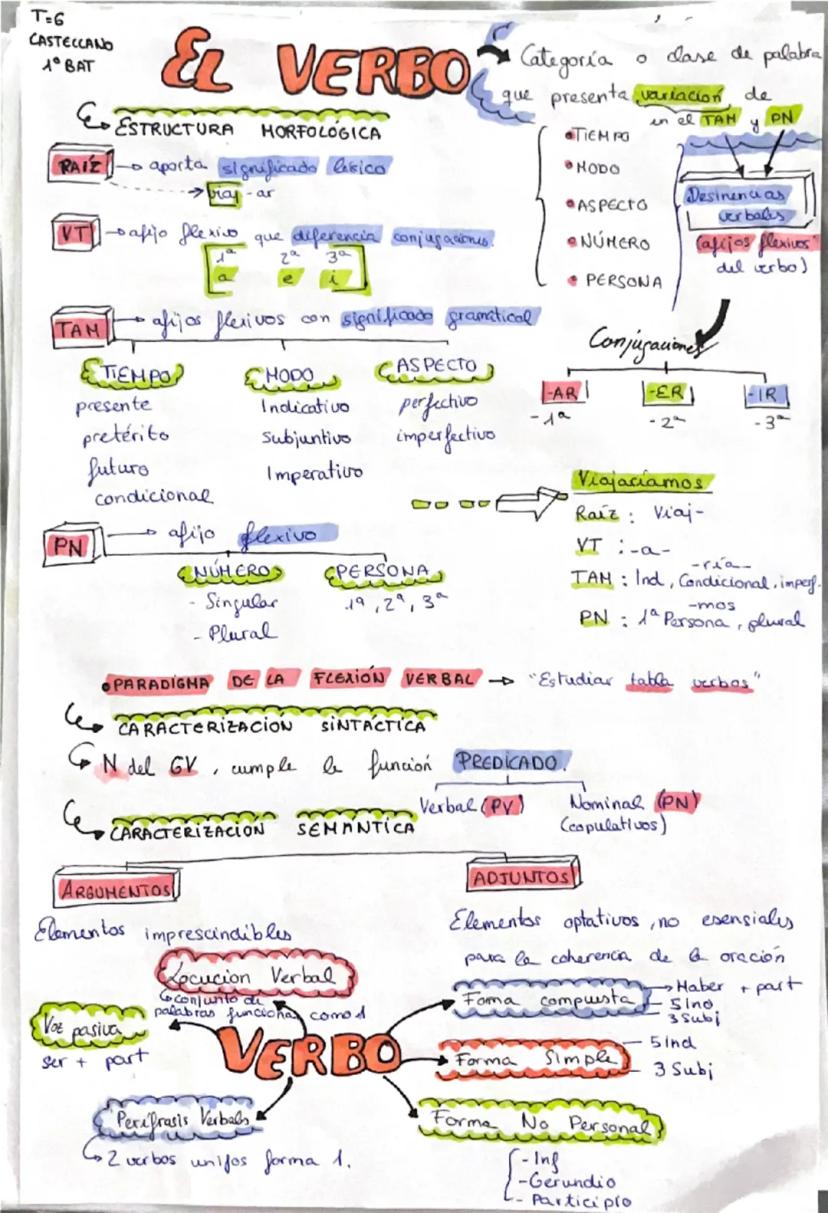 T=6
CASTELLANO
1º BAT
EL VERBO
Categoría o clase de palabra
que presenta variación de
en el TAM y PN
• TIEMPO
• MODO
• ASPECTO
• NÚMERO
• PERSONA
Desinencias
verbales
(afijos flexivos
del verbo)
ESTRUCTURA MORFOLÓGICA
RAÍZ → aporta significado léxico
→ viaj-ar
VT → afijo flexivo que diferencia conjugaciones.
1ª 2ª 3ª
a e i
TAM → afijos flexivos con significado gramatical
TIEMPO MODO ASPECTO
presente Indicativo perfectivo
pretérito Subjuntivo imperfectivo
futuro Imperativo
condicional
Conjugaciones
-AR -ER -IR
-1ª -2ª -3ª
PN → afijo flexivo
NÚMERO PERSONA
- Singular 1ª, 2ª, 3ª
- Plural
Viajaríamos
Raíz : Viaj-
VT : -a-
-ría-
TAM : Ind, Condicional, imperf.
-mos
PN : 1ª Persona, plural
• PARADIGMA DE LA FLEXIÓN VERBAL → "Estudiar tabla verbos"
CARACTERIZACION SINTÁCTICA
N del GV, cumple la función PREDICADO
Verbal (PV) Nominal (PN)
(copulativos)
CARACTERIZACION SEMÁNTICA
ARGUMENTOS
Elementos imprescindibles
ADJUNTOS
Elementos optativos, no esensiales
para la coherencia de la oración
VERBO
Locucion Verbal
conjunto de
palabras funcionan como 1
Voz pasiva
ser + part
Perífrasis Verbales
2 verbos unifos forma 1.
Forma compuesta
→ Haber + part
- 5 Ind
- 3 Subj
Forma Simple
- 5 Ind
- 3 Subj
Forma No Personal
- Inf
- Gerundio
- Participio